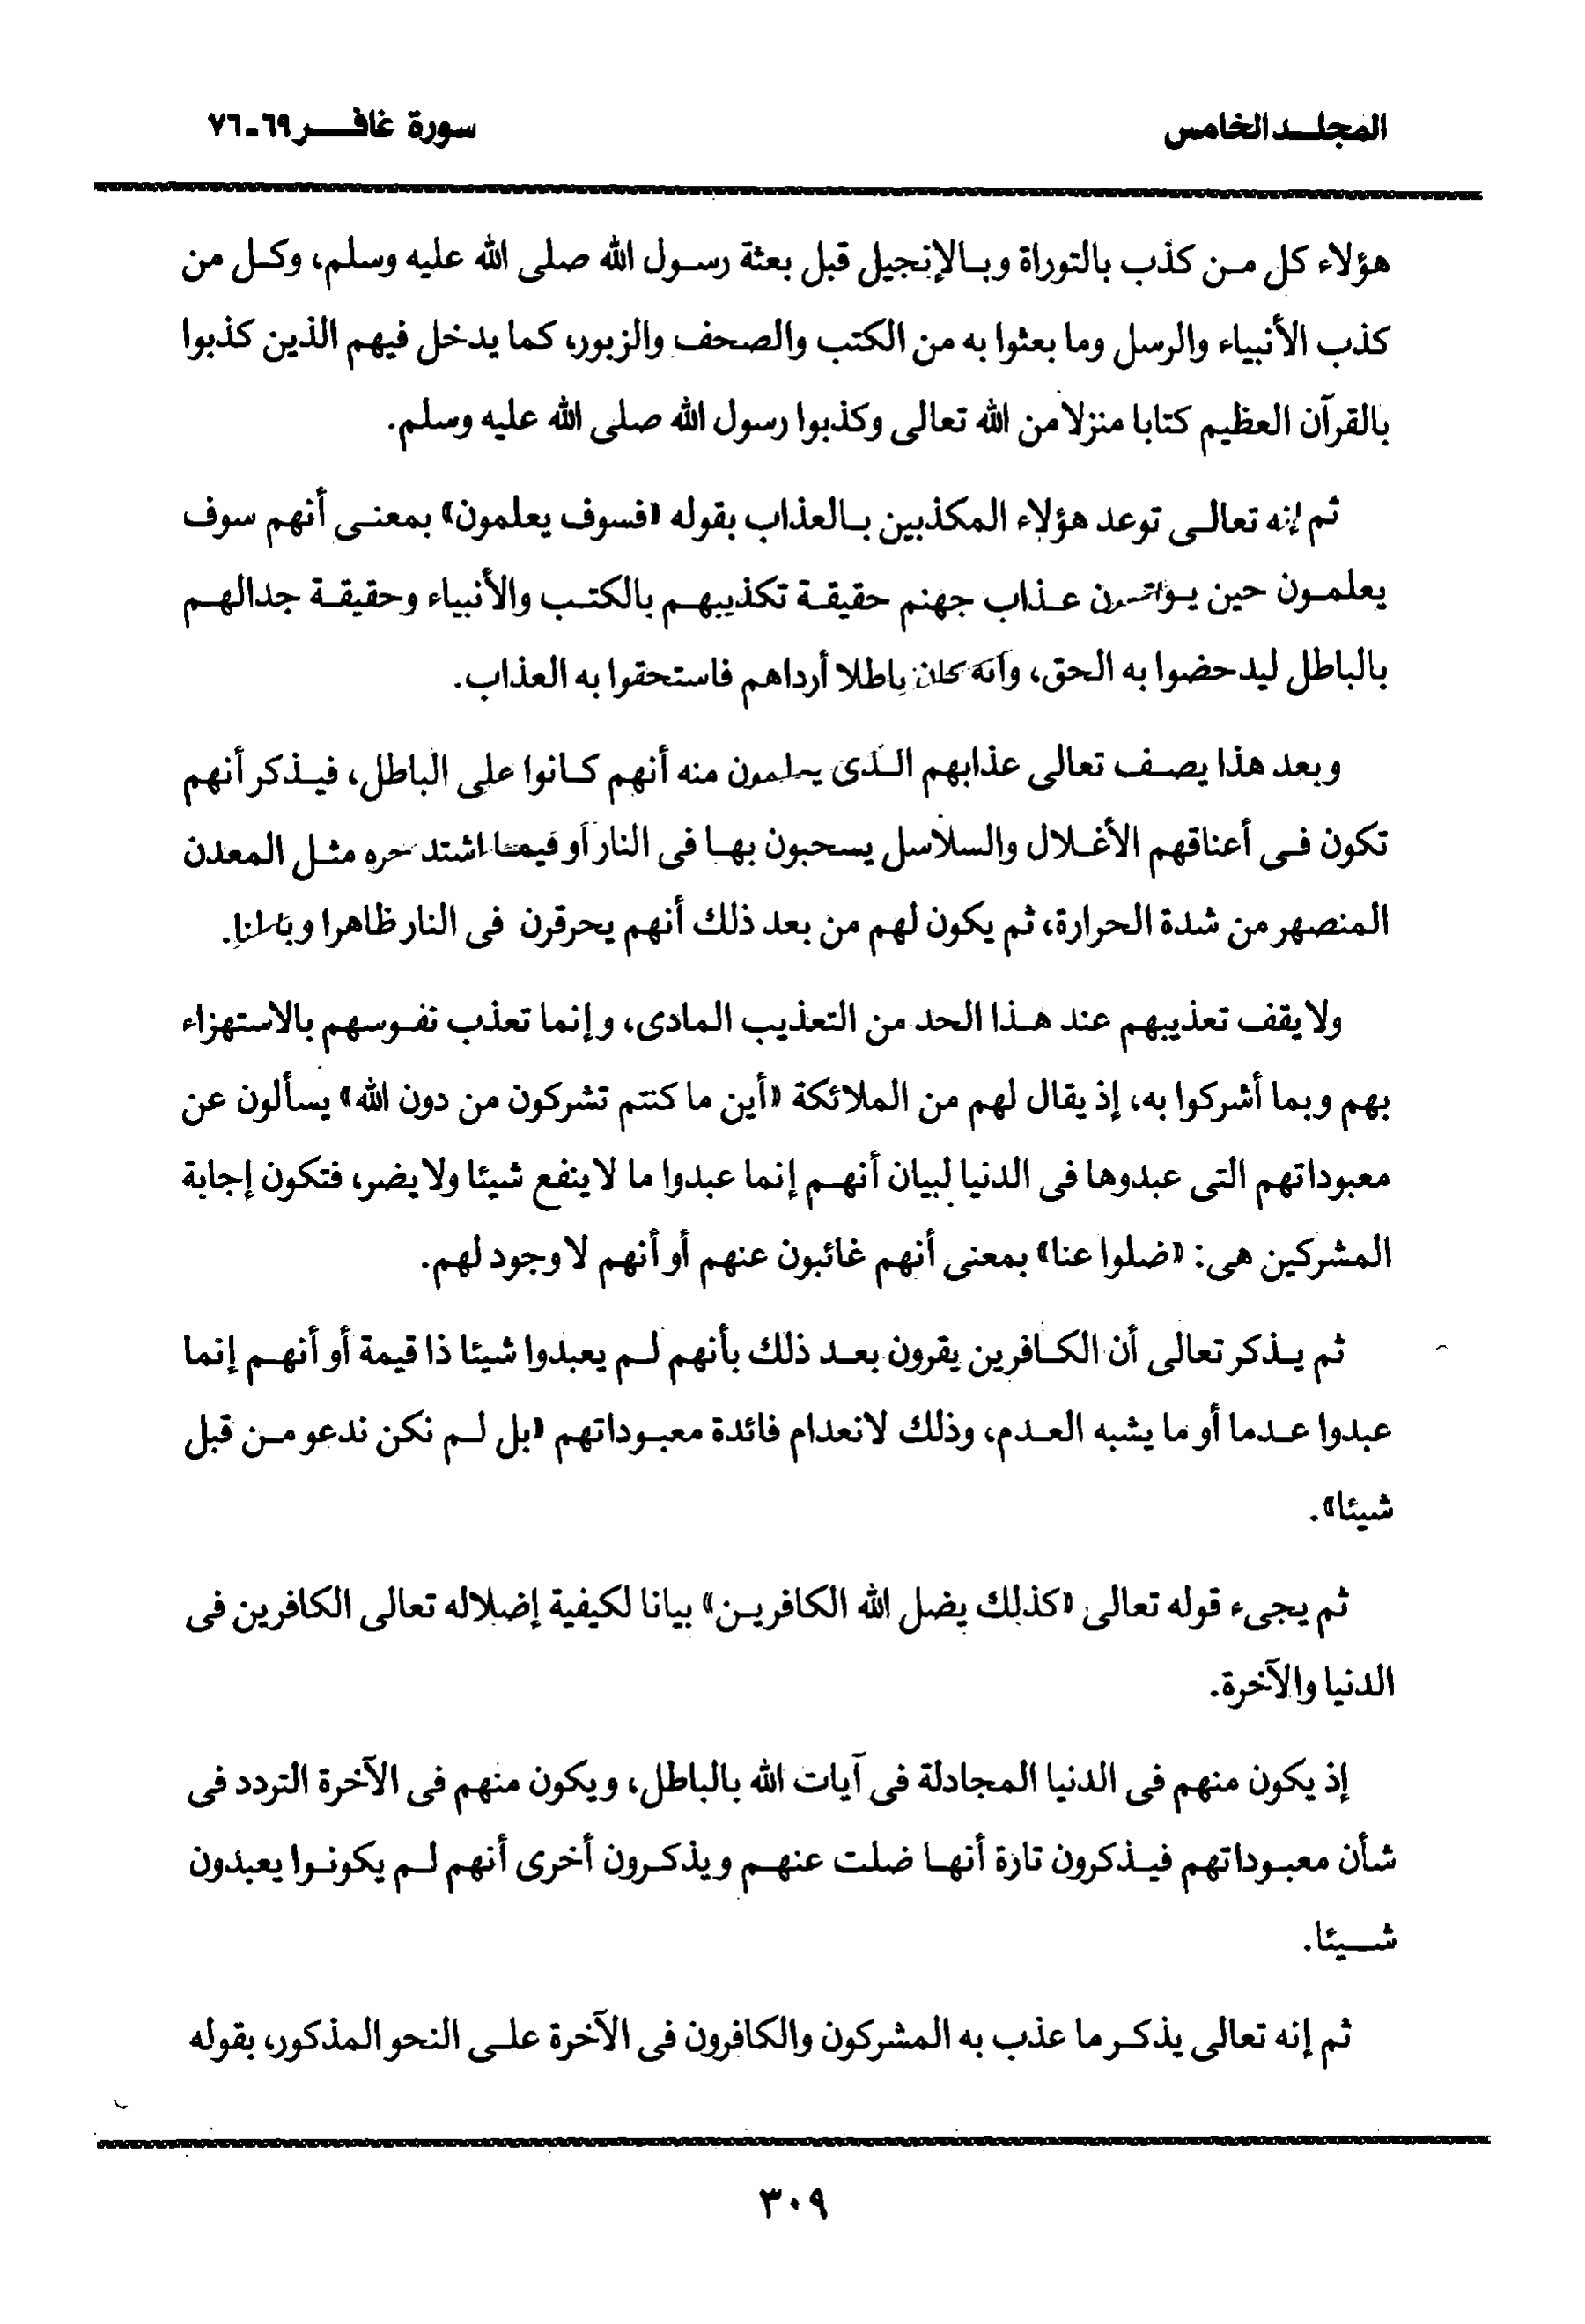 المجلد الخامس
سورة غافر ٦٩-٧٦
هؤلاء كل من كذب بالتوراة وبالإنجيل قبل بعثة رسول الله صلى الله عليه وسلم، وكل من
كذب الأنبياء والرسل وما بعثوا به من الكتب والصحف والزبور، كما يدخل فيهم الذين كذبوا
بالقرآن العظيم كتابا منزلا من الله تعالى وكذبوا رسول الله صلى الله عليه وسلم.
ثم إنه تعالى توعد هؤلاء المكذبين بالعذاب بقوله «فسوف يعلمون» بمعنى أنهم سوف
يعلمون حين عذاب جهنم حقيقة تكذيبهم بالكتب والأنبياء وحقيقة جدالهم
بالباطل ليدحضوا به الحق، وأنه كان باطلا أرداهم فاستحقوا به العذاب.
وبعد هذا يصف تعالى عذابهم الذى يعلمون منه أنهم كانوا على الباطل، فيذكر أنهم
تكون فى أعناقهم الأغلال والسلاسل يسحبون بها فى النار أو فيما اشتد حره مثل المعدن
المنصهر من شدة الحرارة، ثم يكون لهم من بعد ذلك أنهم يحرقرن فى النار ظاهرا وباطنا.
ولا يقف تعذيبهم عند هذا الحد من التعذيب المادى، وإنما تعذب نفوسهم بالاستهزاء
بهم وبما أشركوا به، إذ يقال لهم من الملائكة «أين ما كنتم تشركون من دون الله» يسألون عن
معبوداتهم التى عبدوها فى الدنيا لبيان أنهم إنما عبدوا ما لا ينفع شيئا ولا يضر، فتكون إجابة
المشركين هى: «ضلوا عنا» بمعنى أنهم غائبون عنهم أو أنهم لا وجود لهم.
ثم يذكر تعالى أن الكافرين يقرون بعد ذلك بأنهم لم يعبدوا شيئا ذا قيمة أو أنهم إنما
عبدوا عدما أو ما يشبه العدم، وذلك لانعدام فائدة معبوداتهم «بل لم نكن ندعو من قبل
شيئا».
ثم يجىء قوله تعالى «كذلك يضل الله الكافرين» بيانا لكيفية إضلاله تعالى الكافرين فى
الدنيا والآخرة.
إذ يكون منهم فى الدنيا المجادلة فى آيات الله بالباطل، ويكون منهم فى الآخرة التردد فى
شأن معبوداتهم فيذكرون تارة أنها ضلت عنهم ويذكرون أخرى أنهم لم يكونوا يعبدون
شيئا.
ثم إنه تعالى يذكر ما عذب به المشركون والكافرون فى الآخرة على النحو المذكور، بقوله
٣٠٩